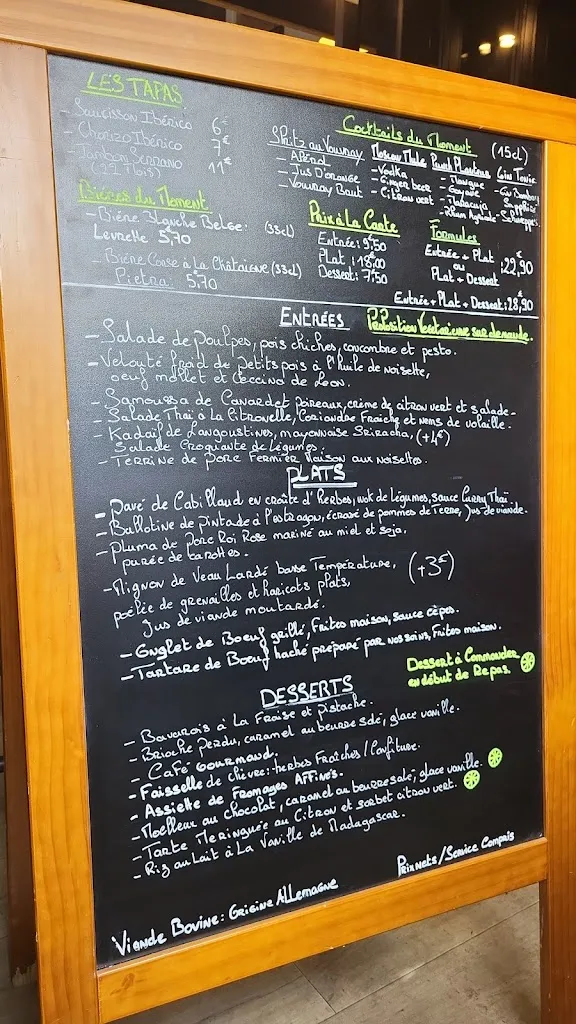 LES TAPAS
- Saucisson Ibérico 6€
- Chorizo Ibérico 7€
- Jambon Serrano 11€
(22 mois)
Bières du Moment
- Bière Blanche Belge: (33cl)
Levrette 5,70
- Bière Corse à La Châtaigne (33cl)
Pietra: 5,70
Cocktails du Moment (15cl)
Spritz au Vouvray
- Apérol
- Jus D'orange
- Vouvray Brut
Moscow Mule
- Vodka
- Ginger beer
- Citron vert
Punch Planteur
- Mangue
- Goyave
- Maracuja
- Rhum Agricole
Gin Tonic
- Gin Bombay
Sapphire
- Schweppes
Prix à la Carte
Entrée: 9,50
Plat: 18,00
Dessert: 7,50
Formules
Entrée + Plat
ou
Plat + Dessert
: 22,90€
Entrée + Plat + Dessert: 28,90€
ENTRÉES
Proposition Végétarienne sur demande.
- Salade de poulpes, pois chiches, concombre et pesto.
- Velouté froid de petits pois à l'huile de noisette,
oeuf mollet et Cecina de Leon.
- Samoussa de Canard et Poireaux, crème de citron vert et salade -
- Salade Thaï à la Citronelle, Coriandre Fraiche et nems de volaille.
- Kadaïf de Langoustines, mayonnaise Sriracha, (+4€)
Salade Croquante de Légumes.
- Terrine de porc Fermier Maison aux noisettes.
PLATS
- Pavé de Cabillaud en croûte d'herbes, wok de légumes, sauce Curry Thaï.
- Ballotine de Pintade à l'estragon, écrasé de pommes de Terre, Jus de viande.
- Pluma de porc Roi Rose mariné au miel et soja,
purée de carottes.
- Mignon de Veau Lardé basse Température, (+3€)
poêlée de grenailles et haricots plats,
Jus de viande moutardé.
- Onglet de Boeuf grillé, Frites maison, sauce cèpes.
- Tartare de Boeuf haché préparé par nos soins, Frites maison.
Dessert à Commander
en début de Repas.
DESSERTS
- Bavarois à La Fraise et Pistache.
- Brioche Perdu, caramel au beurre salé, glace vanille.
- Café Gourmand.
- Faisselle de chèvre: herbes Fraîches / Confiture.
- Assiette de Fromages Affinés.
- Moelleux au chocolat, caramel au beurre salé, glace vanille.
- Tarte Meringuée au Citron et sorbet citron vert.
- Riz au Lait à La Vanille de Madagascar.
Prix nets / Service Compris
Viande Bovine: Origine Allemagne